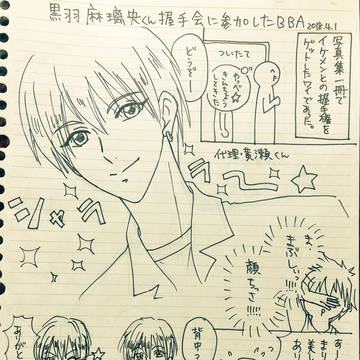 黒羽麻璃央くん握手会に参加したBBA 2018.4.1
写真集一冊で
イケメンとの握手権を
ゲットしたワイであった。
ついたて
やっべ☆
きんちょう
してきた
どうぞー
代理・黄瀬くん
シャラ
ま、
まぶしいっ!!!
顔ちっさ!!!!
背中
ありがと